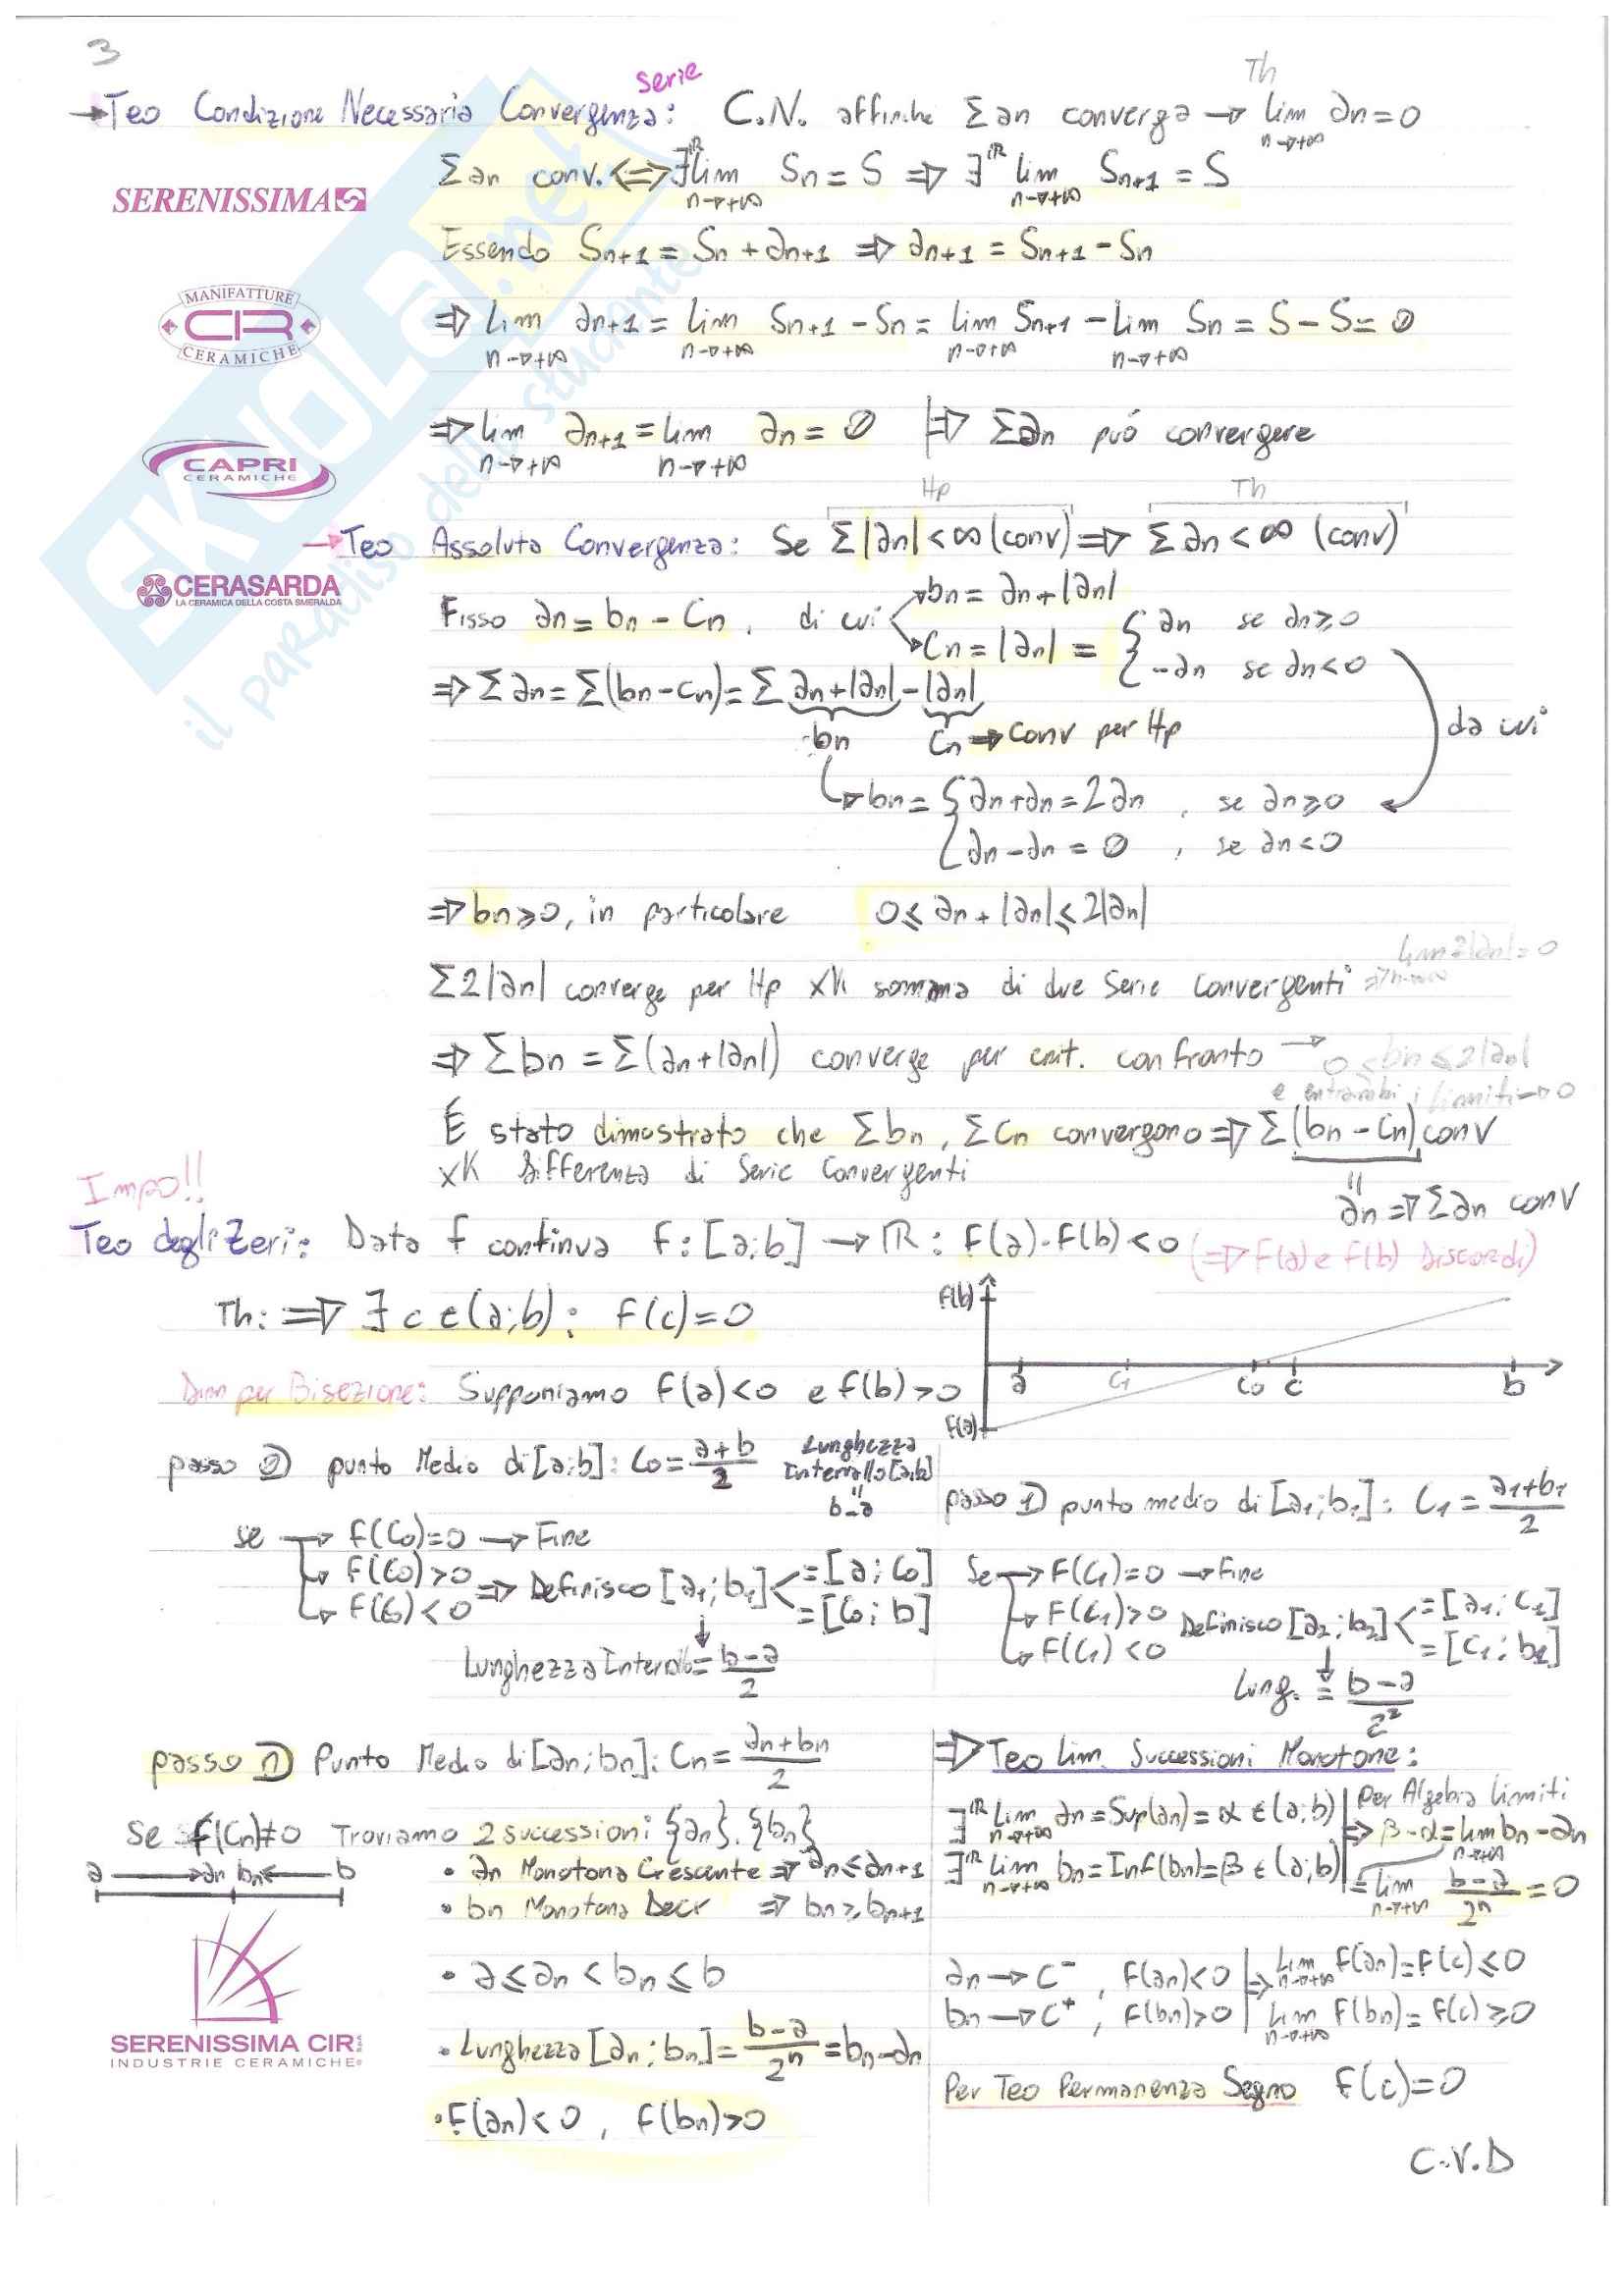 3
serie
Th
→Teo Condizione Necessaria Convergenza: C.N. affinché Σan converga → lim an=0
n→+∞
Σan conv. ⇔ ∃ᴿ lim Sn = S ⇒ ∃ᴿ lim Sn+1 = S
n→+∞ n→+∞
SERENISSIMA
Essendo Sn+1 = Sn + an+1 ⇒ an+1 = Sn+1 - Sn
MANIFATTURE
CIR
CERAMICHE
⇒ lim an+1 = lim Sn+1 - Sn = lim Sn+1 - lim Sn = S - S = 0
n→+∞ n→+∞ n→+∞ n→+∞
⇒ lim an+1 = lim an = 0 | ⇒ Σan può convergere
n→+∞ n→+∞
CAPRI
CERAMICHE
Hp Th
→Teo Assoluta Convergenza: Se Σ|an| < ∞ (conv) ⇒ Σan < ∞ (conv)
CERASARDA
LA CERAMICA DELLA COSTA SMERALDA
Fisso an = bn - Cn, di cui bn = an + |an|
Cn = |an| = { an se an ≥ 0
-an se an < 0
⇒ Σan = Σ(bn - cn) = Σ an + |an| - |an|
bn Cn → conv per Hp
da cui
bn = { an + an = 2an , se an ≥ 0
an - an = 0 , se an < 0
⇒ bn ≥ 0, in particolare 0 ≤ an + |an| ≤ 2|an|
lim 2|an| = 0
Σ2|an| converge per Hp xk somma di due Serie Convergenti ⇒ n→+∞
⇒ Σbn = Σ(an + |an|) converge per crit. confronto → 0 ≤ bn ≤ 2|an|
e entrambi i limiti → 0
É stato dimostrato che Σbn, ΣCn convergono ⇒ Σ(bn - Cn) conv
xK Differenza di Serie Convergenti
"
an ⇒ Σan conv
Impo!!
Teo degli Zeri: Data f continua f: [a;b] → ℝ : f(a)·f(b) < 0 (⇒ f(a) e f(b) Discordi)
Th: ⇒ ∃ c ∈ (a;b): f(c) = 0
f(b)
a C1 C0 c b
f(a)
Dim per Bisezione: Supponiamo f(a) < 0 e f(b) > 0
passo 0) punto Medio di [a;b]: C0 = a+b/2 Lunghezza
Intervallo [a;b]
"
b-a
se → f(C0) = 0 → Fine
f(C0) > 0
f(C0) < 0 ⇒ Definisco [a1;b1] = [a;C0]
= [C0;b]
Lunghezza Intervallo = b-a/2
passo 1) punto medio di [a1;b1]: C1 = a1+b1/2
Se → f(C1) = 0 → Fine
f(C1) > 0
f(C1) < 0 Definisco [a2;b2] = [a1;C1]
= [C1;b1]
Lung. = b-a/2²
passo n) Punto Medio di [an;bn]: Cn = an+bn/2
Se f(Cn) ≠ 0 Troviamo 2 successioni {an}, {bn}
a → an bn ← b
• an Monotona Crescente ⇒ an ≤ an+1
• bn Monotona Decr ⇒ bn ≥ bn+1
• a ≤ an < bn ≤ b
• Lunghezza [an;bn] = b-a/2ⁿ = bn - an
• f(an) < 0 , f(bn) > 0
⇒ Teo Lim. Successioni Monotone:
∃ᴿ lim an = Sup(an) = α ∈ (a;b)
n→+∞
∃ᴿ lim bn = Inf(bn) = β ∈ (a;b)
n→+∞
Per Algebra Limiti
⇒ β - α = lim bn - an
n→+∞
= lim b-a/2ⁿ = 0
n→+∞
an → c⁻ , f(an) < 0 | ⇒ lim f(an) = f(c) ≤ 0
n→+∞
bn → c⁺ , f(bn) > 0 | lim f(bn) = f(c) ≥ 0
n→+∞
Per Teo Permanenza Segno f(c) = 0
C.V.D
SERENISSIMA CIR
INDUSTRIE CERAMICHE
SKUOLA.net
il paradiso dello studente